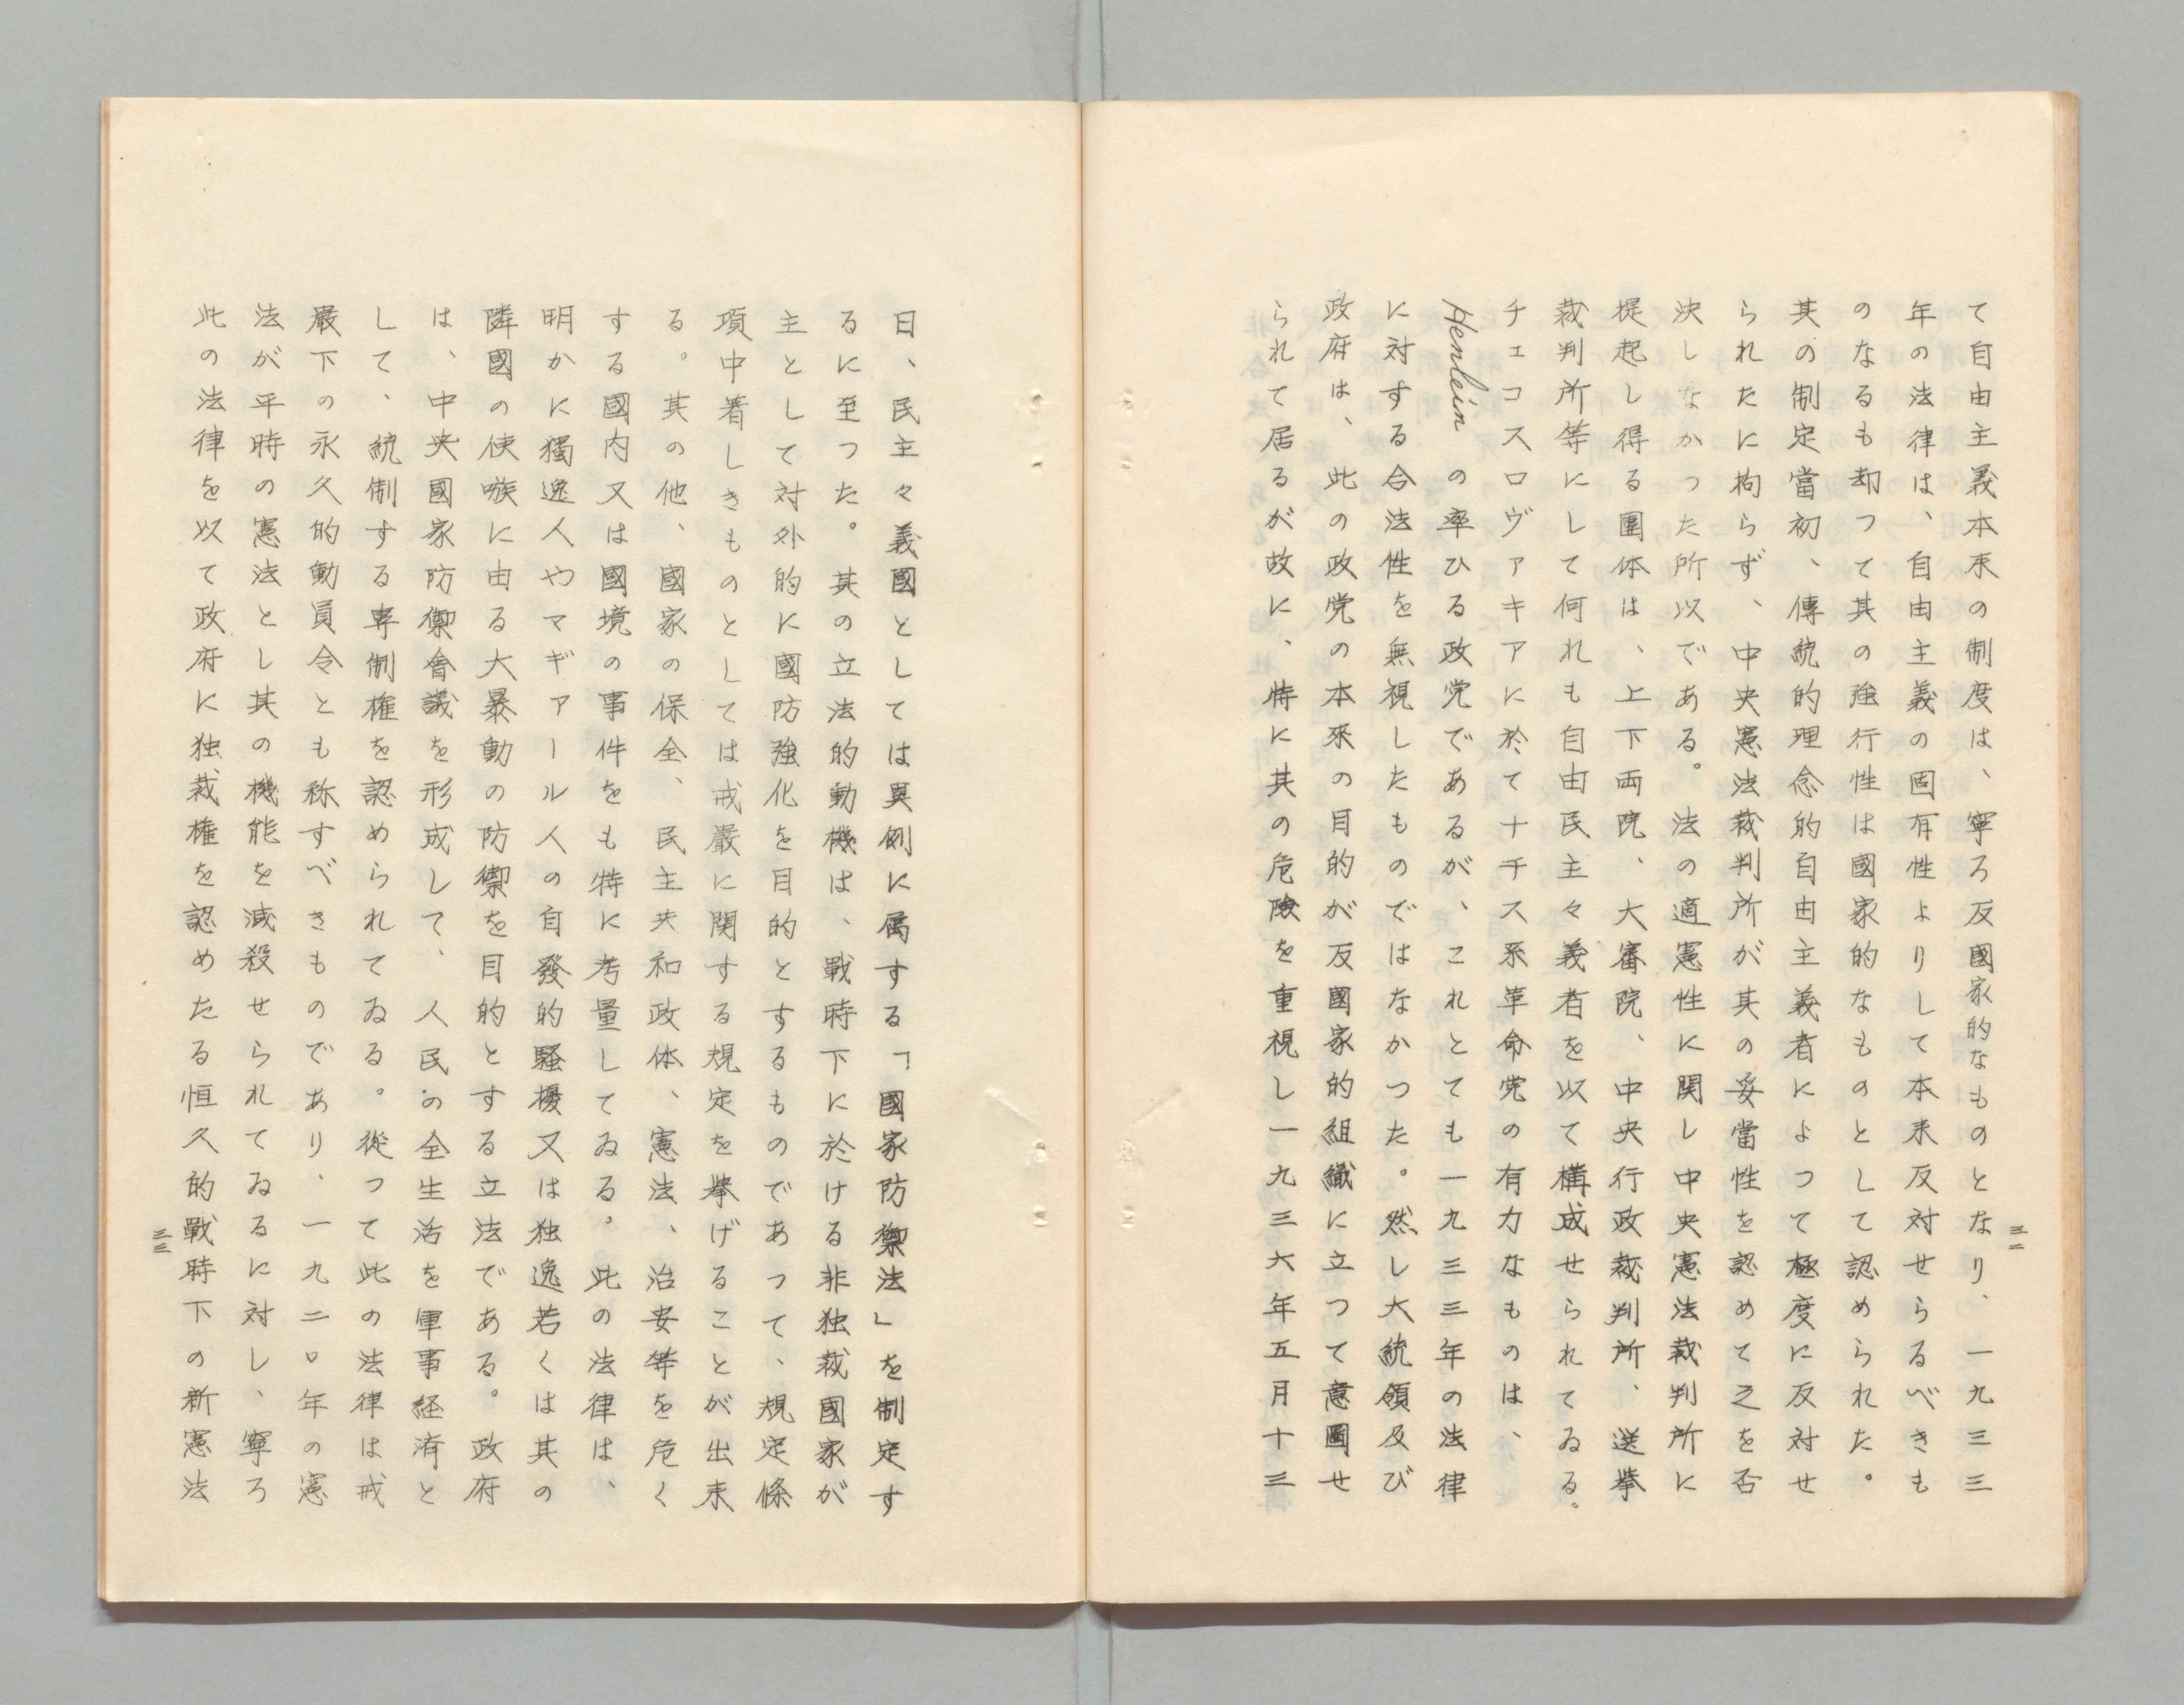 て自由主義本来の制度は、寧ろ反國家的なものとなり、一九三三
年の法律は、自由主義の固有性よりして本来反対せらるべきも
のなるも却つて其の強行性は國家的なものとして認められた。
其の制定當初、傳統的理念的自由主義者によつて極度に反対せ
られたに拘らず、中央憲法裁判所が其の妥當性を認めて之を否
決しなかつた所以である。法の適憲性に関し中央憲法裁判所に
提起し得る團体は、上下両院、大審院、中央行政裁判所、選挙
裁判所等にして何れも自由民主々義者を以て構成せられてゐる。
チェコスロヴァキアに於てナチス系革命党の有力なものは、
Henlein の率ひる政党であるが、これとても一九三三年の法律
に対する合法性を無視したものではなかつた。然し大統領及び
政府は、此の政党の本來の目的が反國家的組織に立つて意圖せ
られて居るが故に、特に其の危険を重視し一九三六年五月十三
三二
日、民主々義國としては異例に属する「國家防禦法」を制定す
るに至つた。其の立法的動機は、戰時下に於ける非独裁國家が
主として対外的に國防強化を目的とするものであつて、規定條
項中著しきものとしては戒嚴に関する規定を挙げることが出来
る。其の他、國家の保全、民主共和政体、憲法、治安等を危く
する國内又は國境の事件をも特に考量してゐる。此の法律は、
明かに獨逸人やマギアール人の自發的騒擾又は独逸若くは其の
隣國の使嗾に由る大暴動の防禦を目的とする立法である。政府
は、中央國家防禦會議を形成して、人民の全生活を軍事経済と
して、統制する専制権を認められてゐる。從つて此の法律は戒
嚴下の永久的動員令とも称すべきものであり、一九二〇年の憲
法が平時の憲法とし其の機能を減殺せられてゐるに対し、寧ろ
此の法律を以て政府に独裁権を認めたる恒久的戰時下の新憲法
三三